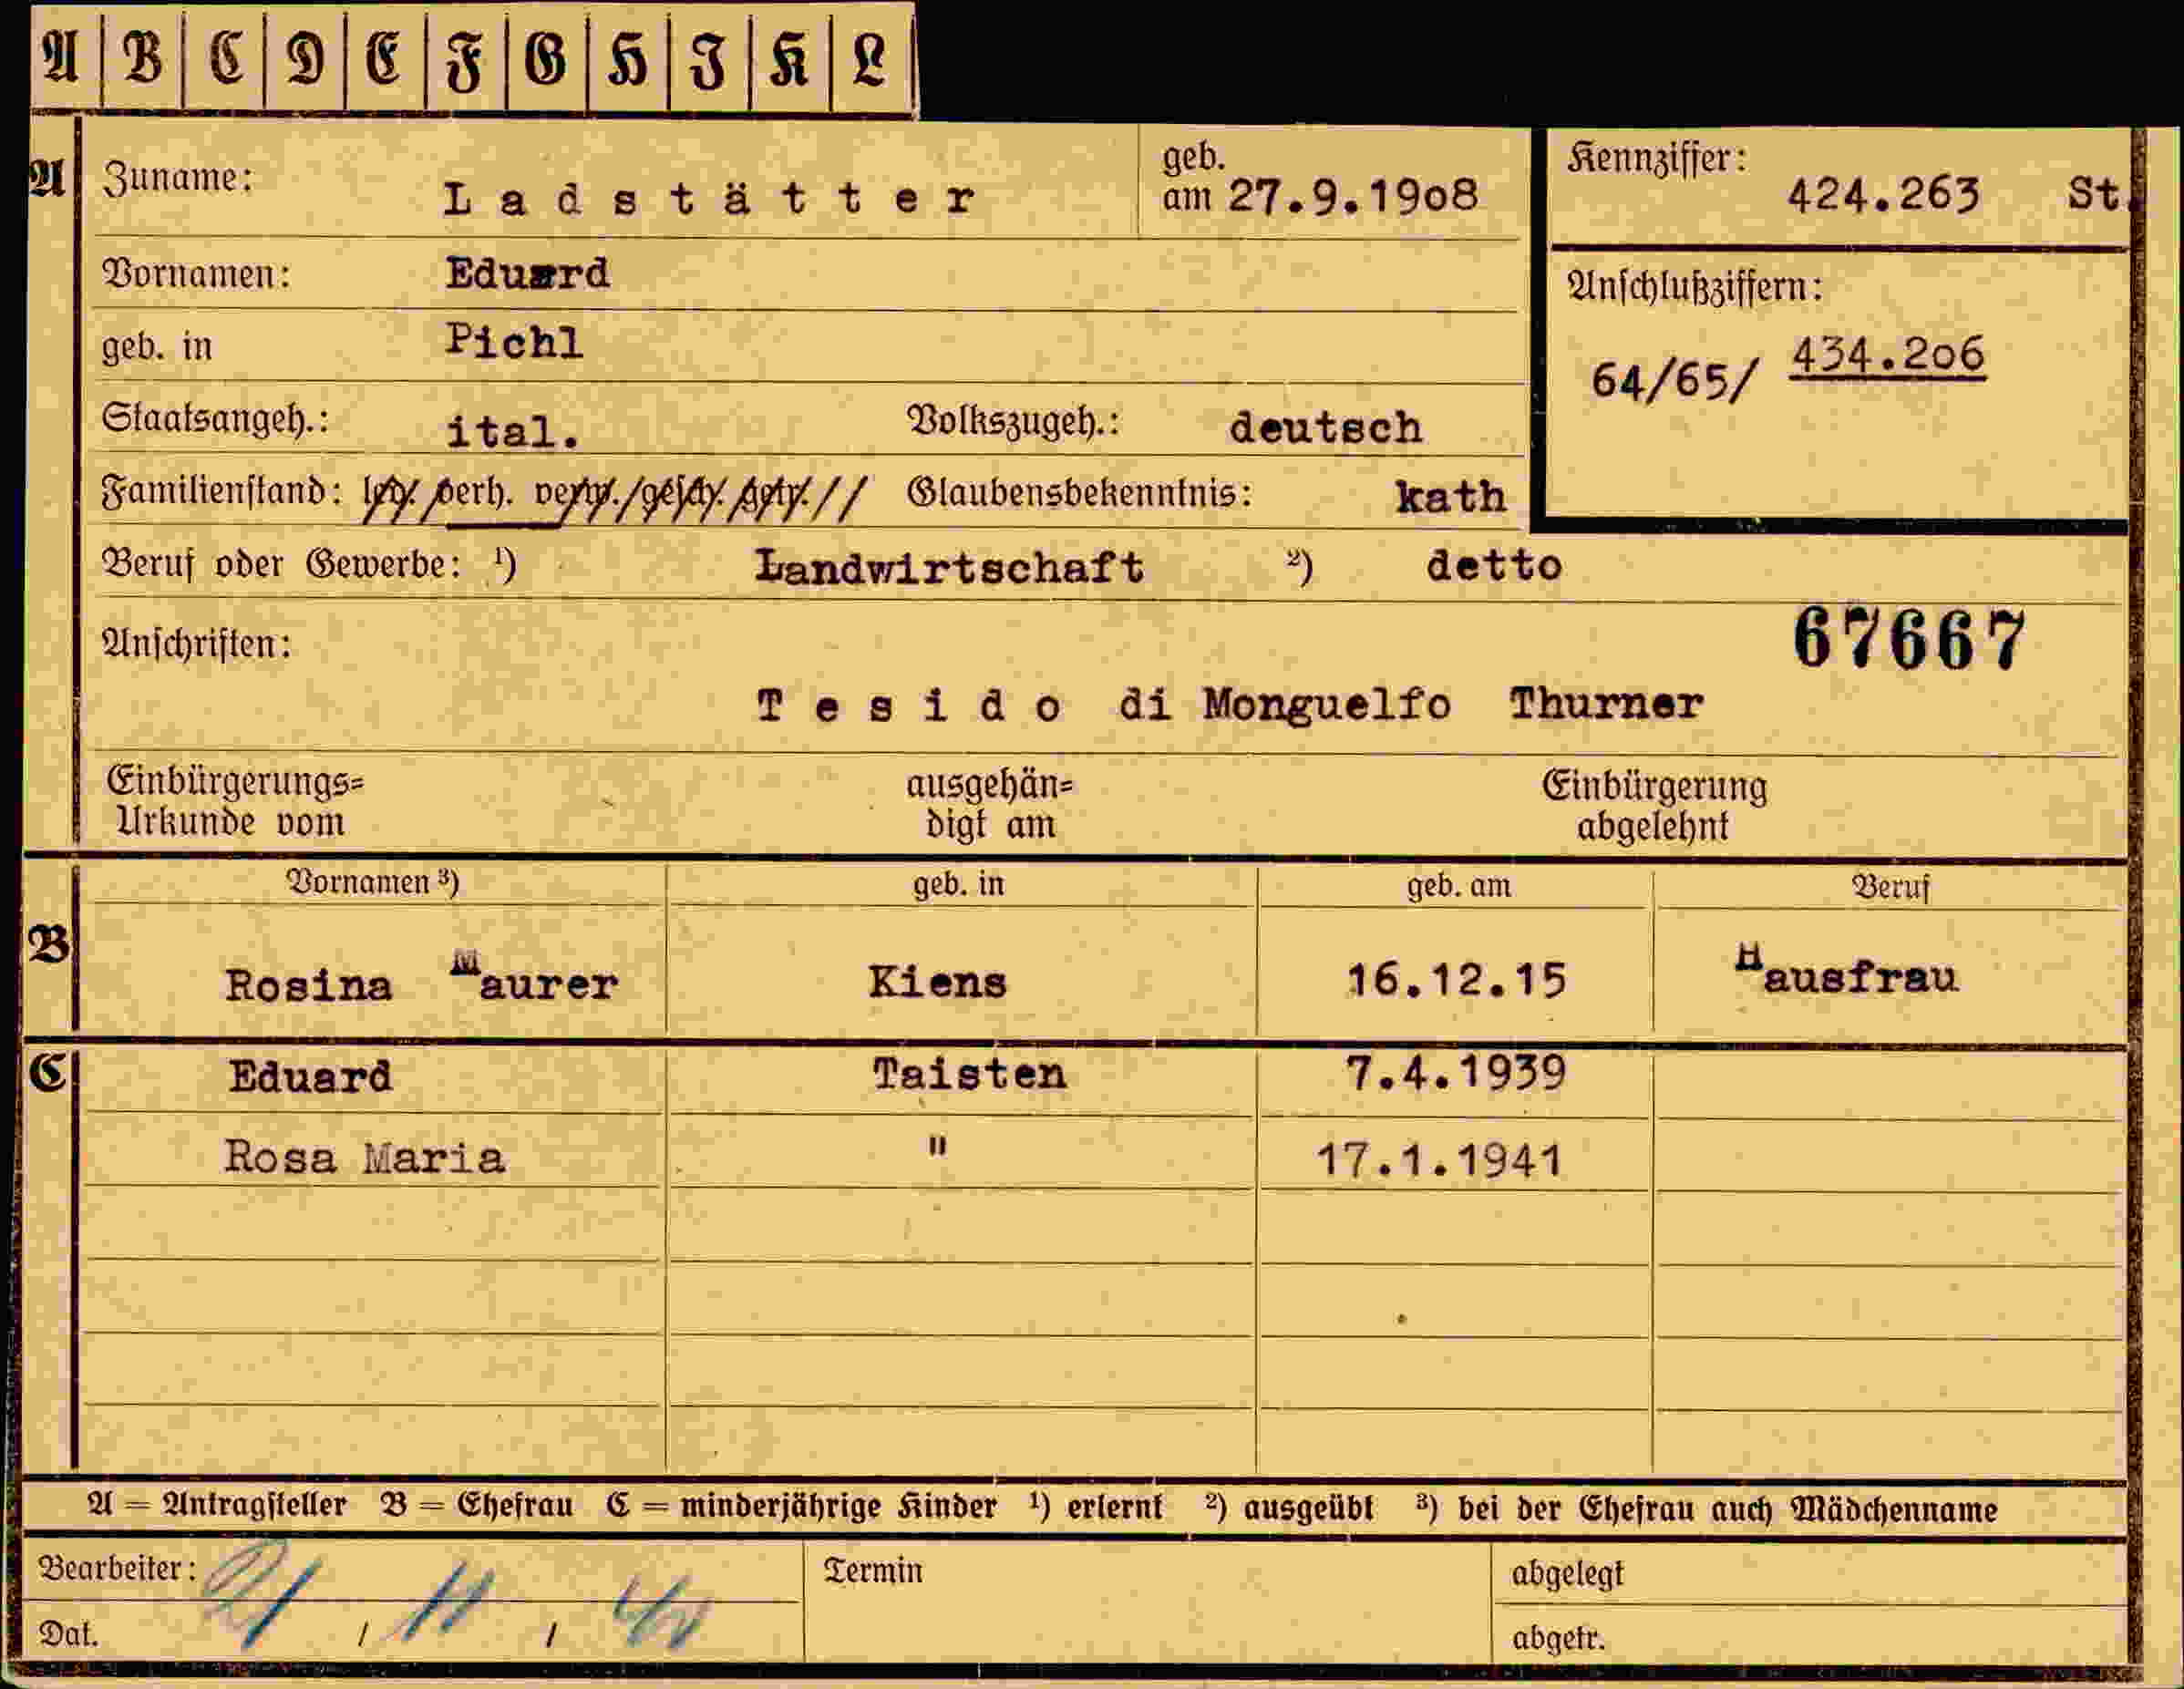 A B C D E F G H I K L
A Zuname: Ladstätter geb. am 27.9.19o8 Kennziffer: 424.263 St.
Vornamen: Eduard Anschlußziffern:
geb. in Pichl 64/65/ 434.2o6
Staatsangeh.: ital. Volkszugeh.: deutsch
Familienstand: led. verh. verw. gesch. getr. Glaubensbekenntnis: kath
Beruf oder Gewerbe: ¹) Landwirtschaft ²) detto
Anschriften: 67667
Tesido di Monguelfo Thurner
Einbürgerungs= ausgehän= Einbürgerung
Urkunde vom digt am abgelehnt
Vornamen ³) geb. in geb. am Beruf
B Rosina Maurer Kiens 16.12.15 Hausfrau
C Eduard Taisten 7.4.1939
Rosa Maria " 17.1.1941
A = Antragsteller B = Ehefrau C = minderjährige Kinder ¹) erlernt ²) ausgeübt ³) bei der Ehefrau auch Mädchenname
Bearbeiter: Termin abgelegt
Dat. 21 / 11 / 40 abgetr.